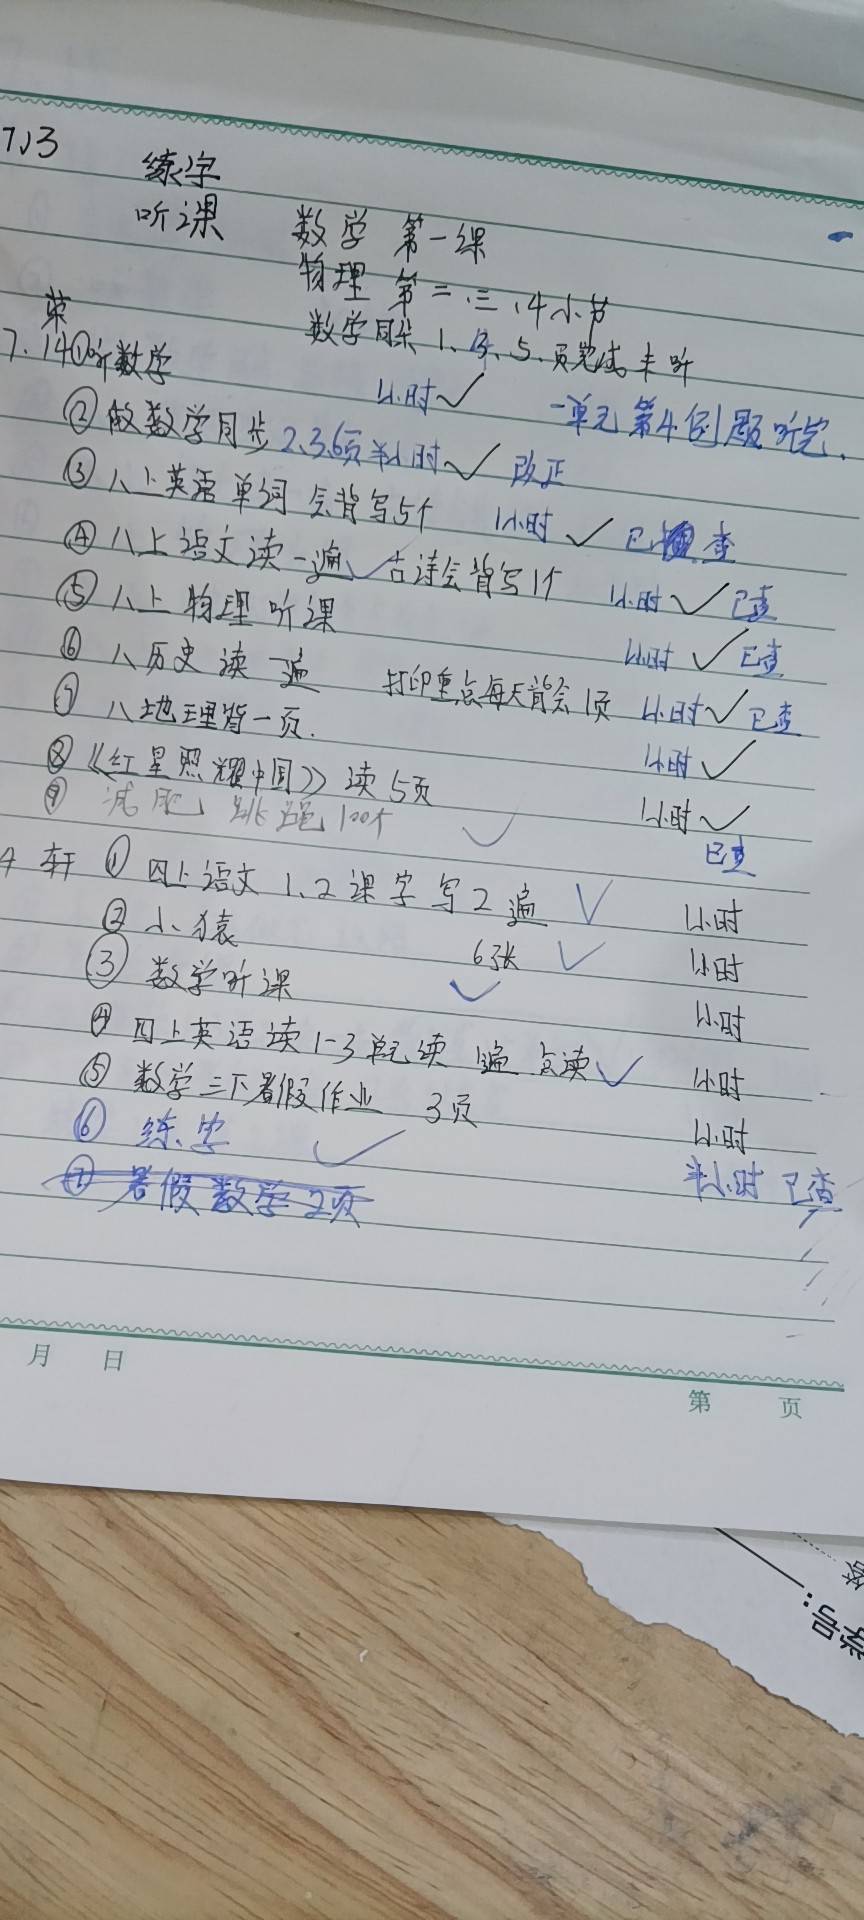 7.13
练字
听课 数学 第一课
物理 第二.三.4小节
数学同步 1、3、5.页完成 未听
荣
7.14①听数学 1小时✓ 一单元第4例题听完.
②做数学同步2.3.6页 半小时✓ 改正
③八上英语单词 会背写5个 1小时✓ 已查
④八上语文读一遍✓古诗会背写1个 1小时✓ 已查
⑤八上物理听课 1小时✓ 已查
⑥八历史读一遍 打印重点每天背会1页 1小时✓ 已查
⑦八地理背一页. 1小时✓
⑧《红星照耀中国》读5页 1小时✓
⑨减肥 跳绳100个 ✓ 已查
轩 ①四上语文1.2课字写2遍 ✓ 1小时
②小猿 6张 ✓ 1小时
③数学听课 ✓ 1小时
④四上英语读1-3单元读 1遍 点读✓ 1小时
⑤数学三下暑假作业 3页 1小时
⑥练字 ✓ 半小时 已查
⑦暑假数学2页
月 日
第 页
学号：